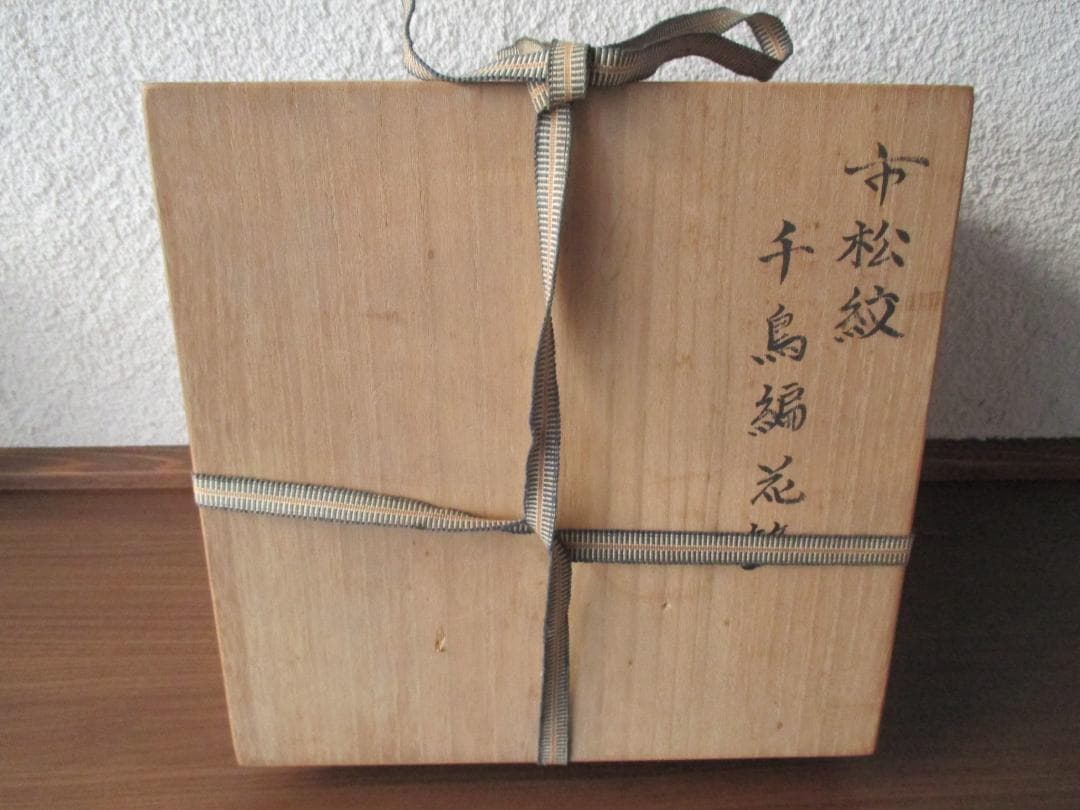 市松紋
千鳥編花